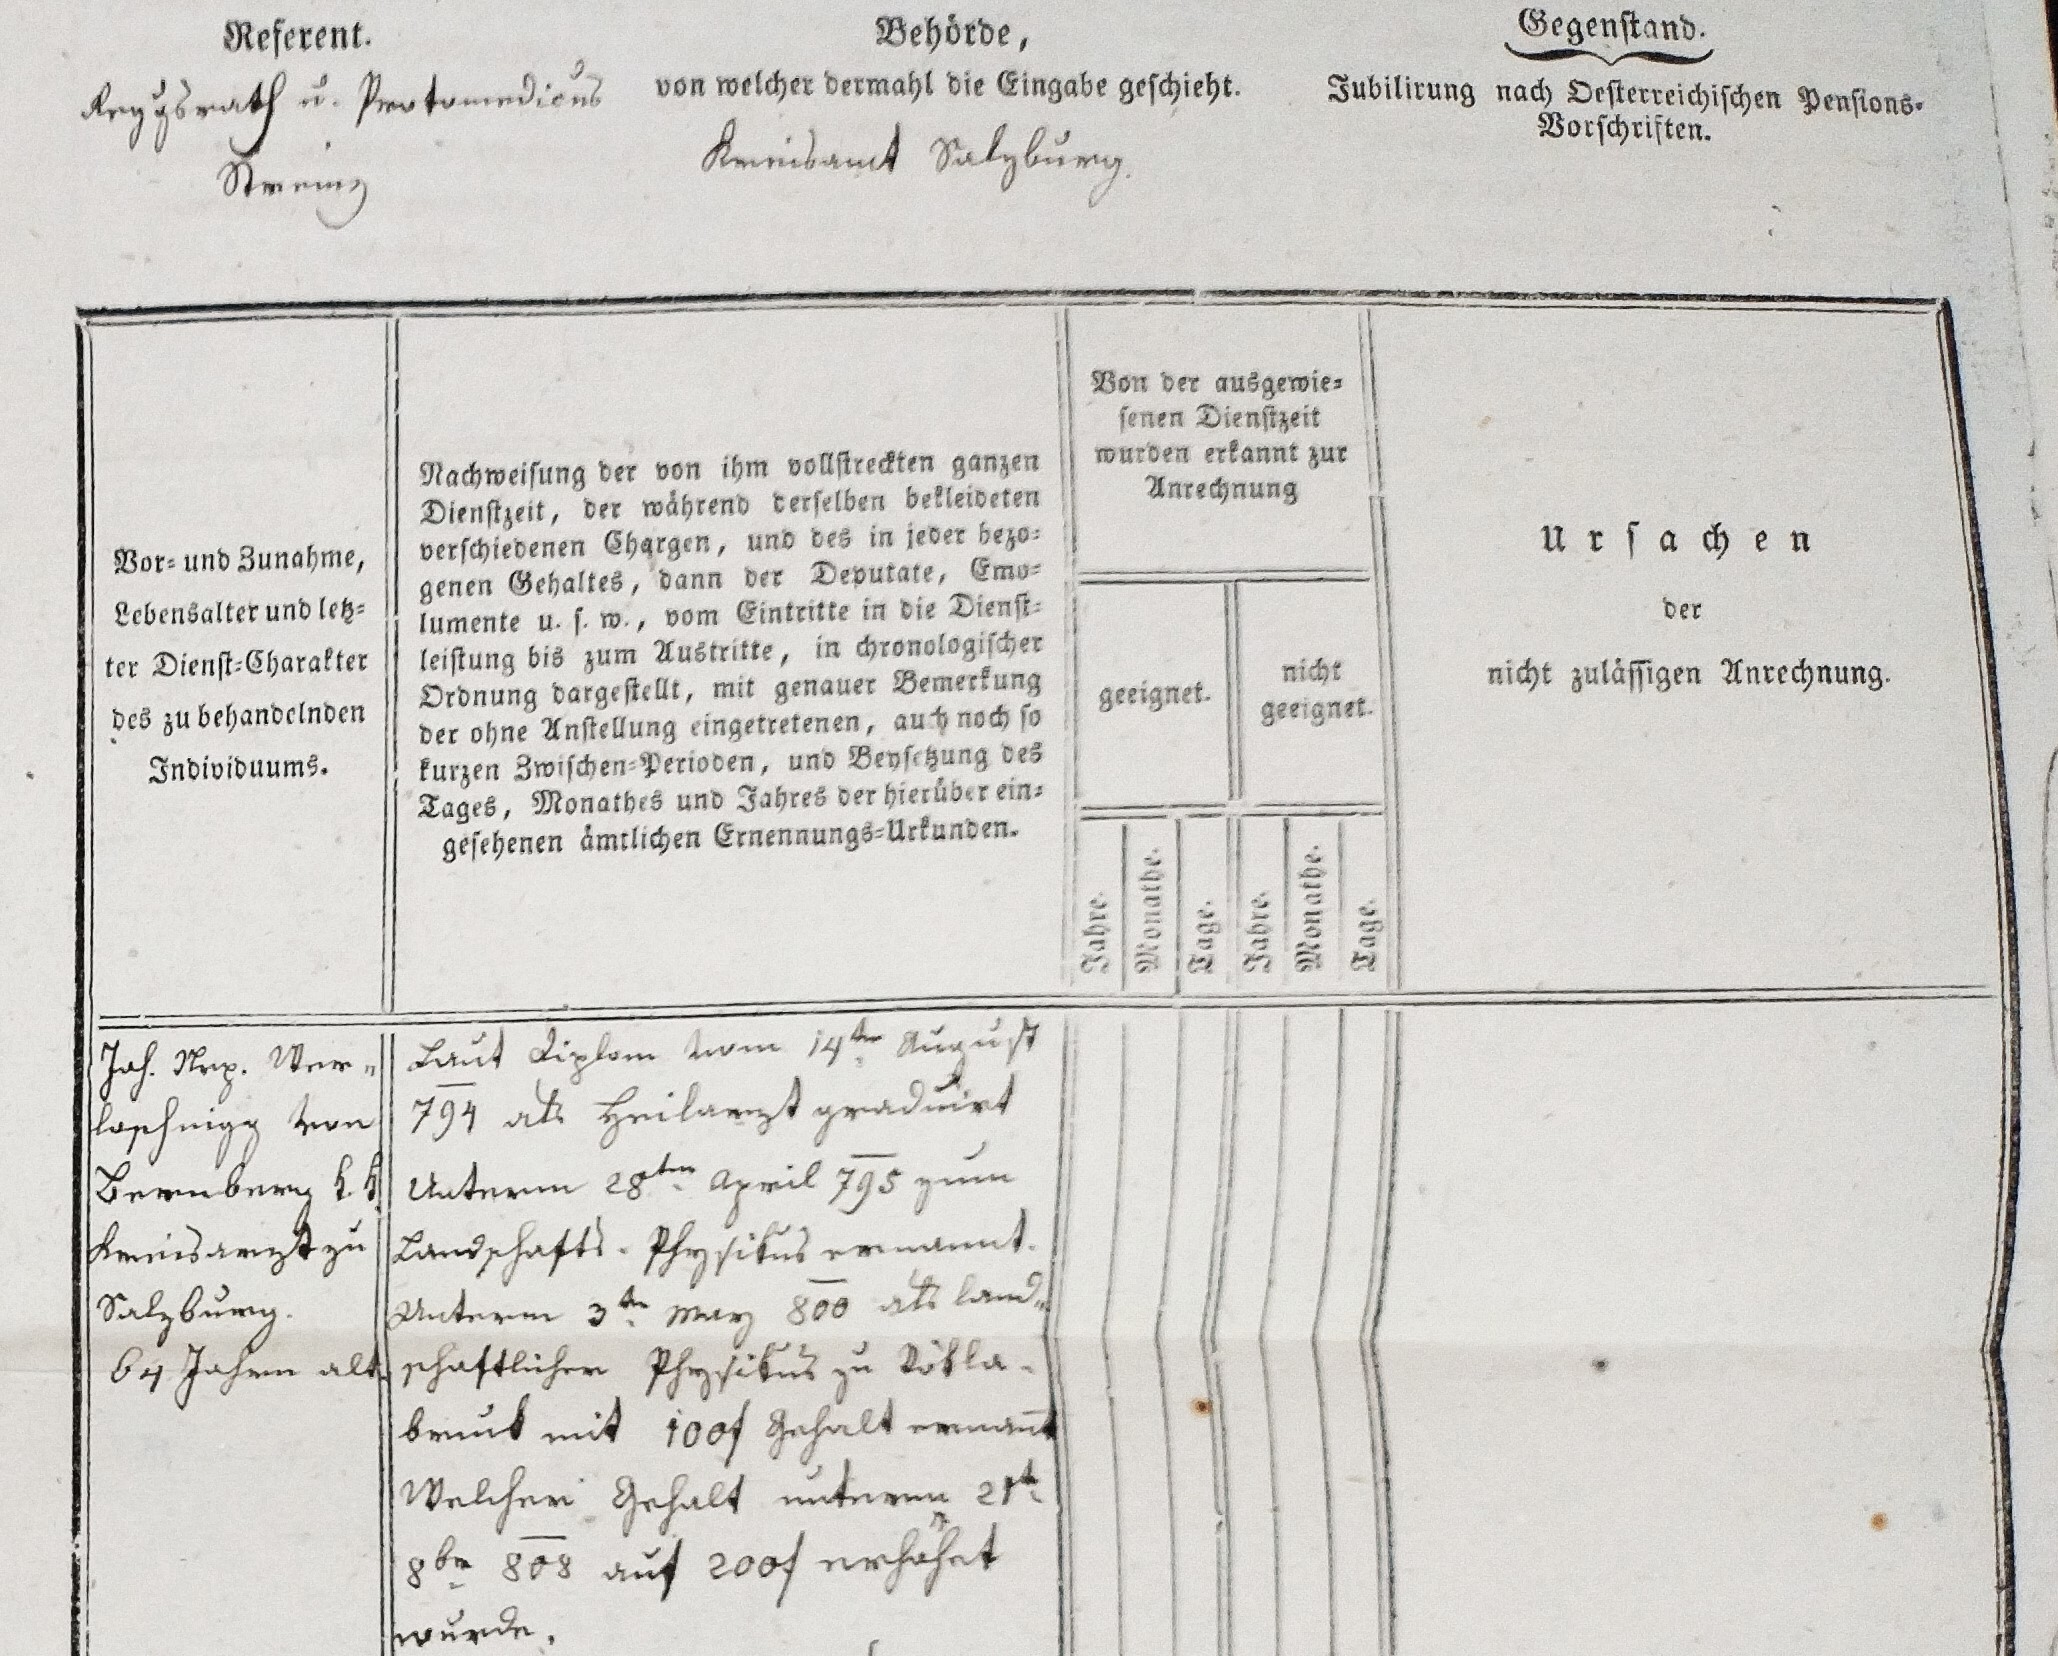 Referent.
Reggsrath u. Protomedicus
Streinz
Behörde,
von welcher dermahl die Eingabe geschieht.
Kreisamt Salzburg.
Gegenstand.
Jubilirung nach Oesterreichischen Pensions-
Vorschriften.
Vor- und Zunahme,
Lebensalter und letz-
ter Dienst-Charakter
des zu behandelnden
Individuums.
Nachweisung der von ihm vollstreckten ganzen
Dienstzeit, der während derselben bekleideten
verschiedenen Chargen, und des in jeder bezo-
genen Gehaltes, dann der Deputate, Emo-
lumente u. s. w., vom Eintritte in die Dienst-
leistung bis zum Austritte, in chronologischer
Ordnung dargestellt, mit genauer Bemerkung
der ohne Anstellung eingetretenen, auch noch so
kurzen Zwischen-Perioden, und Beysetzung des
Tages, Monathes und Jahres der hierüber ein-
gesehenen ämtlichen Ernennungs-Urkunden.
Von der ausgewie-
senen Dienstzeit
wurden erkannt zur
Anrechnung
geeignet.
nicht
geeignet.
Jahre.
Monathe.
Tage.
Jahre.
Monathe.
Tage.
Ursachen
der
nicht zulässigen Anrechnung.
Joh. Nep. Wer-
loschnigg von
Bernberg k. k.
Kreisarzt zu
Salzburg.
64 Jahre alt.
Laut Diplom vom 14ten August
794 als Heilarzt graduirt
Unterm 28ten April 795 zum
Landschafts-Physikus ernannt.
Unterm 3ten May 800 als land-
schaftlicher Physikus zu Vökla-
bruk mit 100f Gehalt ernannt
Welcher Gehalt unterm 21t
8ber 808 auf 200f erhöhet
wurde.